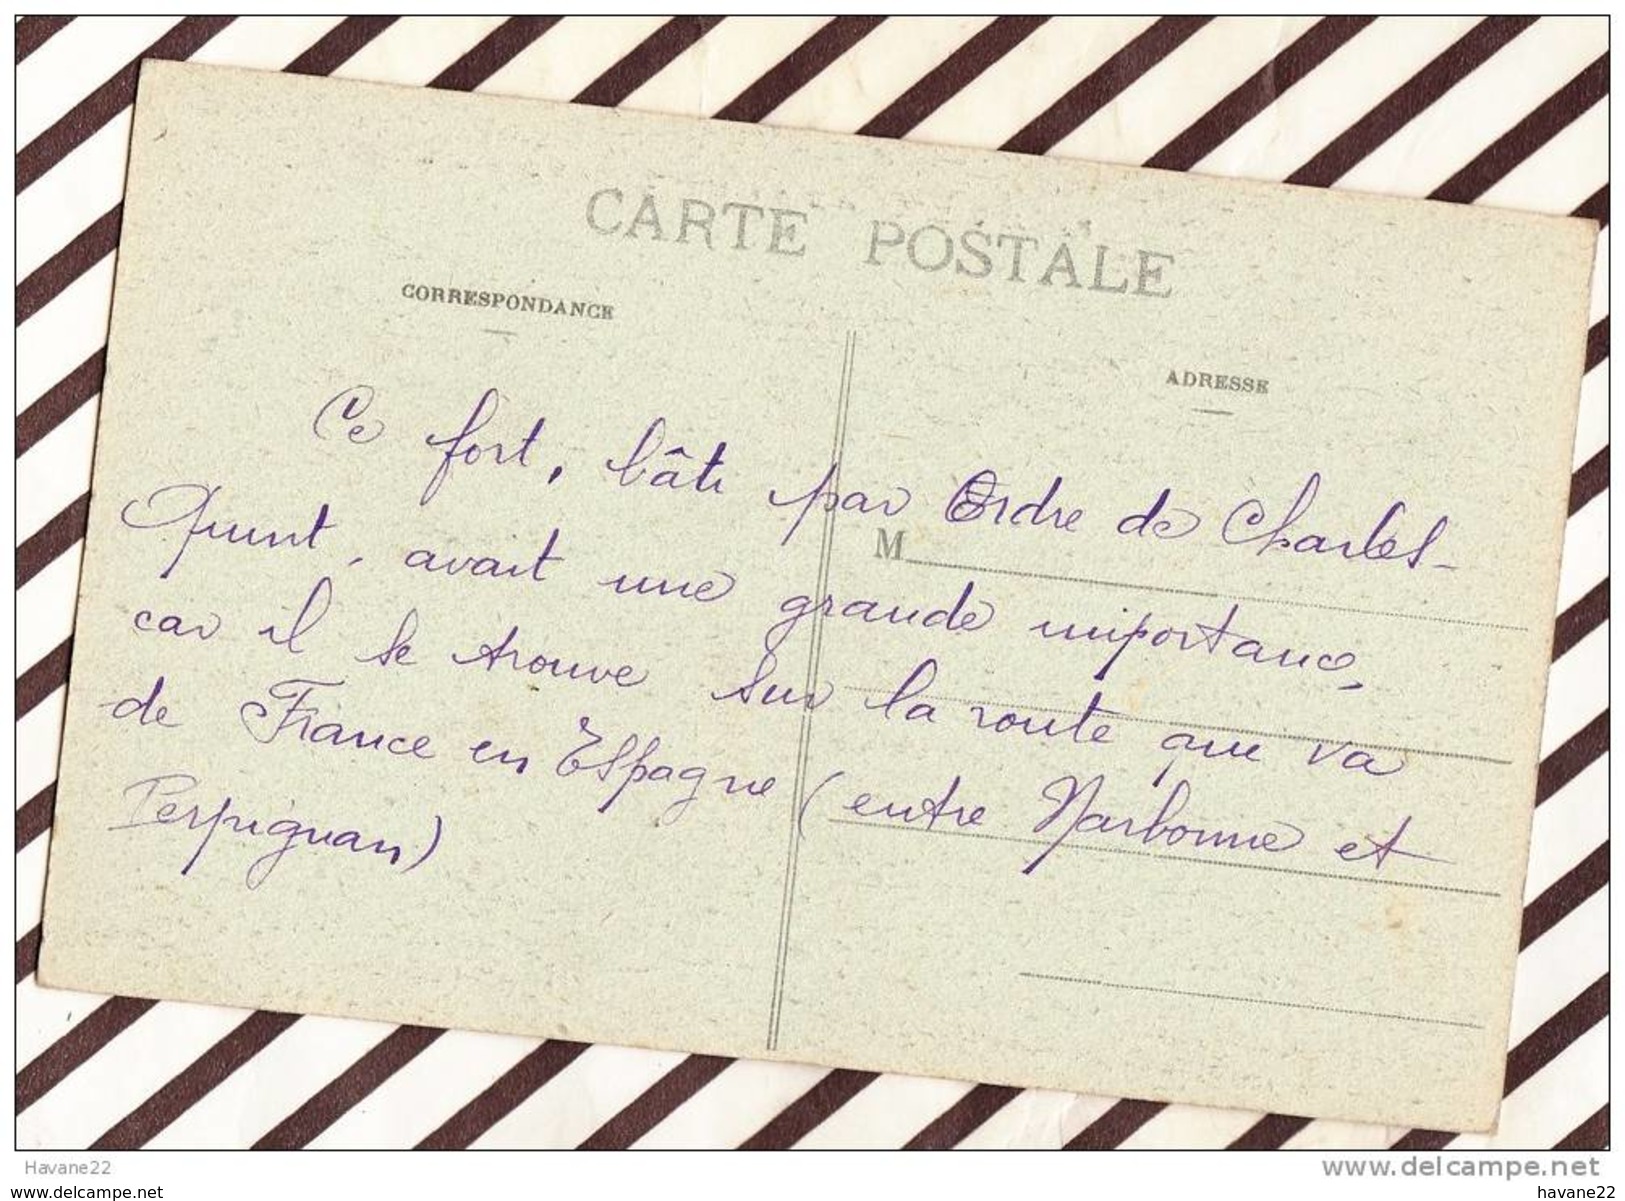 CARTE POSTALE
CORRESPONDANCE
ADRESSE
Ce fort, bâti par Ordre de Charles-
Quint, avait une grande importance,
M
car il se trouve sur la route que va
de France en Espagne (entre Narbonne et
Perpignan)
Havane22
www.delcampe.net
www.delcampe.com
havane22